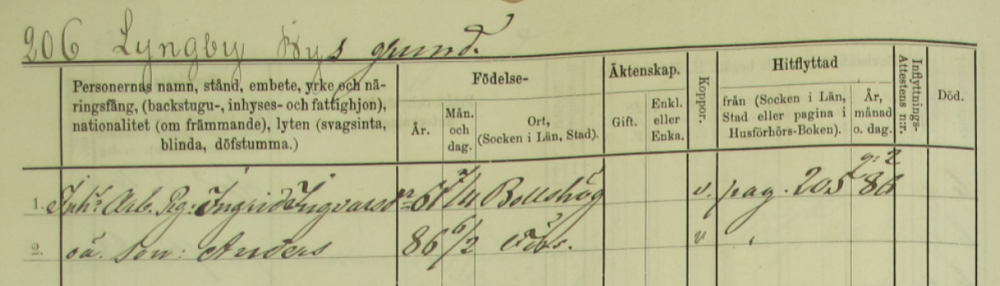 206 Lyngby Bys grund.
Personernas namn, stånd, embete, yrke och nä-
ringsfång, (backstugu-, inhyses- och fattighjon),
nationalitet (om främmande), lyten (svagsinta,
blinda, döfstumma.)
Födelse-
År.
Mån.
och
dag.
Ort,
(Socken i Län, Stad).
Äktenskap.
Gift.
Enkl.
eller
Enka.
Koppor.
Hitflyttad
från (Socken i Län,
Stad eller pagina i
Husförhörs-Boken).
År,
månad
o. dag.
Inflyttnings-
Attestens n:r.
Död.
1. Inh. Arb. Pig: Ingrid Ingvarsd 61 Bollshög v. pag. 205 86
2. oä. Son: Anders 86 6/2 v